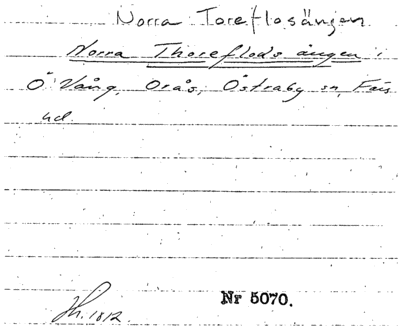 Norra Toreflosängen
Norra Thoreflods ängen i
Ö Vång, Orås, Östraby sn, Färs
hd.
Nr 5070.
Jh. 1812